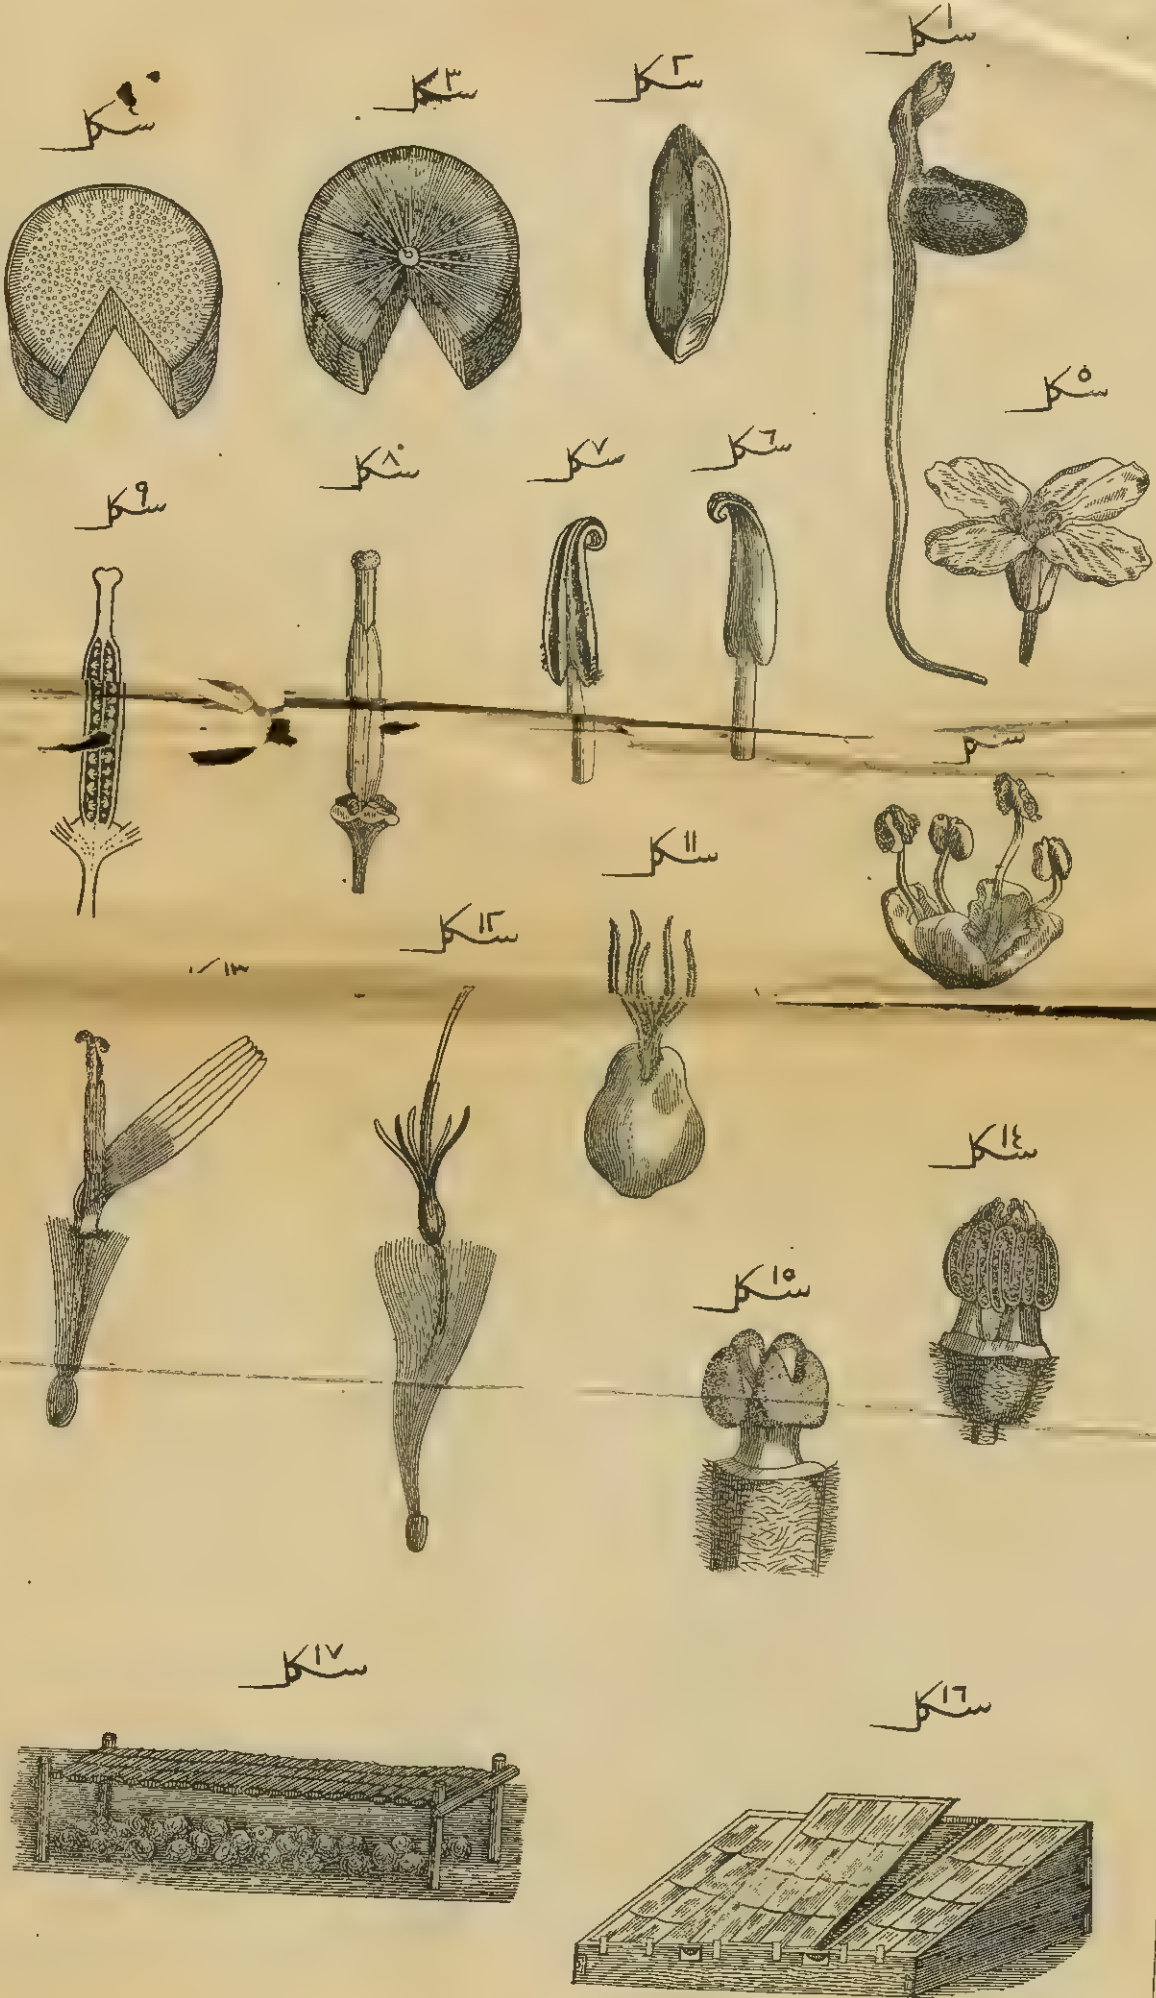 شكل ١
شكل ٢
شكل ٣
شكل
شكل ٥
شكل ٦
شكل ٧
شكل ٨
شكل ٩
شكل ١١
شكل ١٢
١٣
شكل ١٤
شكل ١٥
شكل ١٦
شكل ١٧